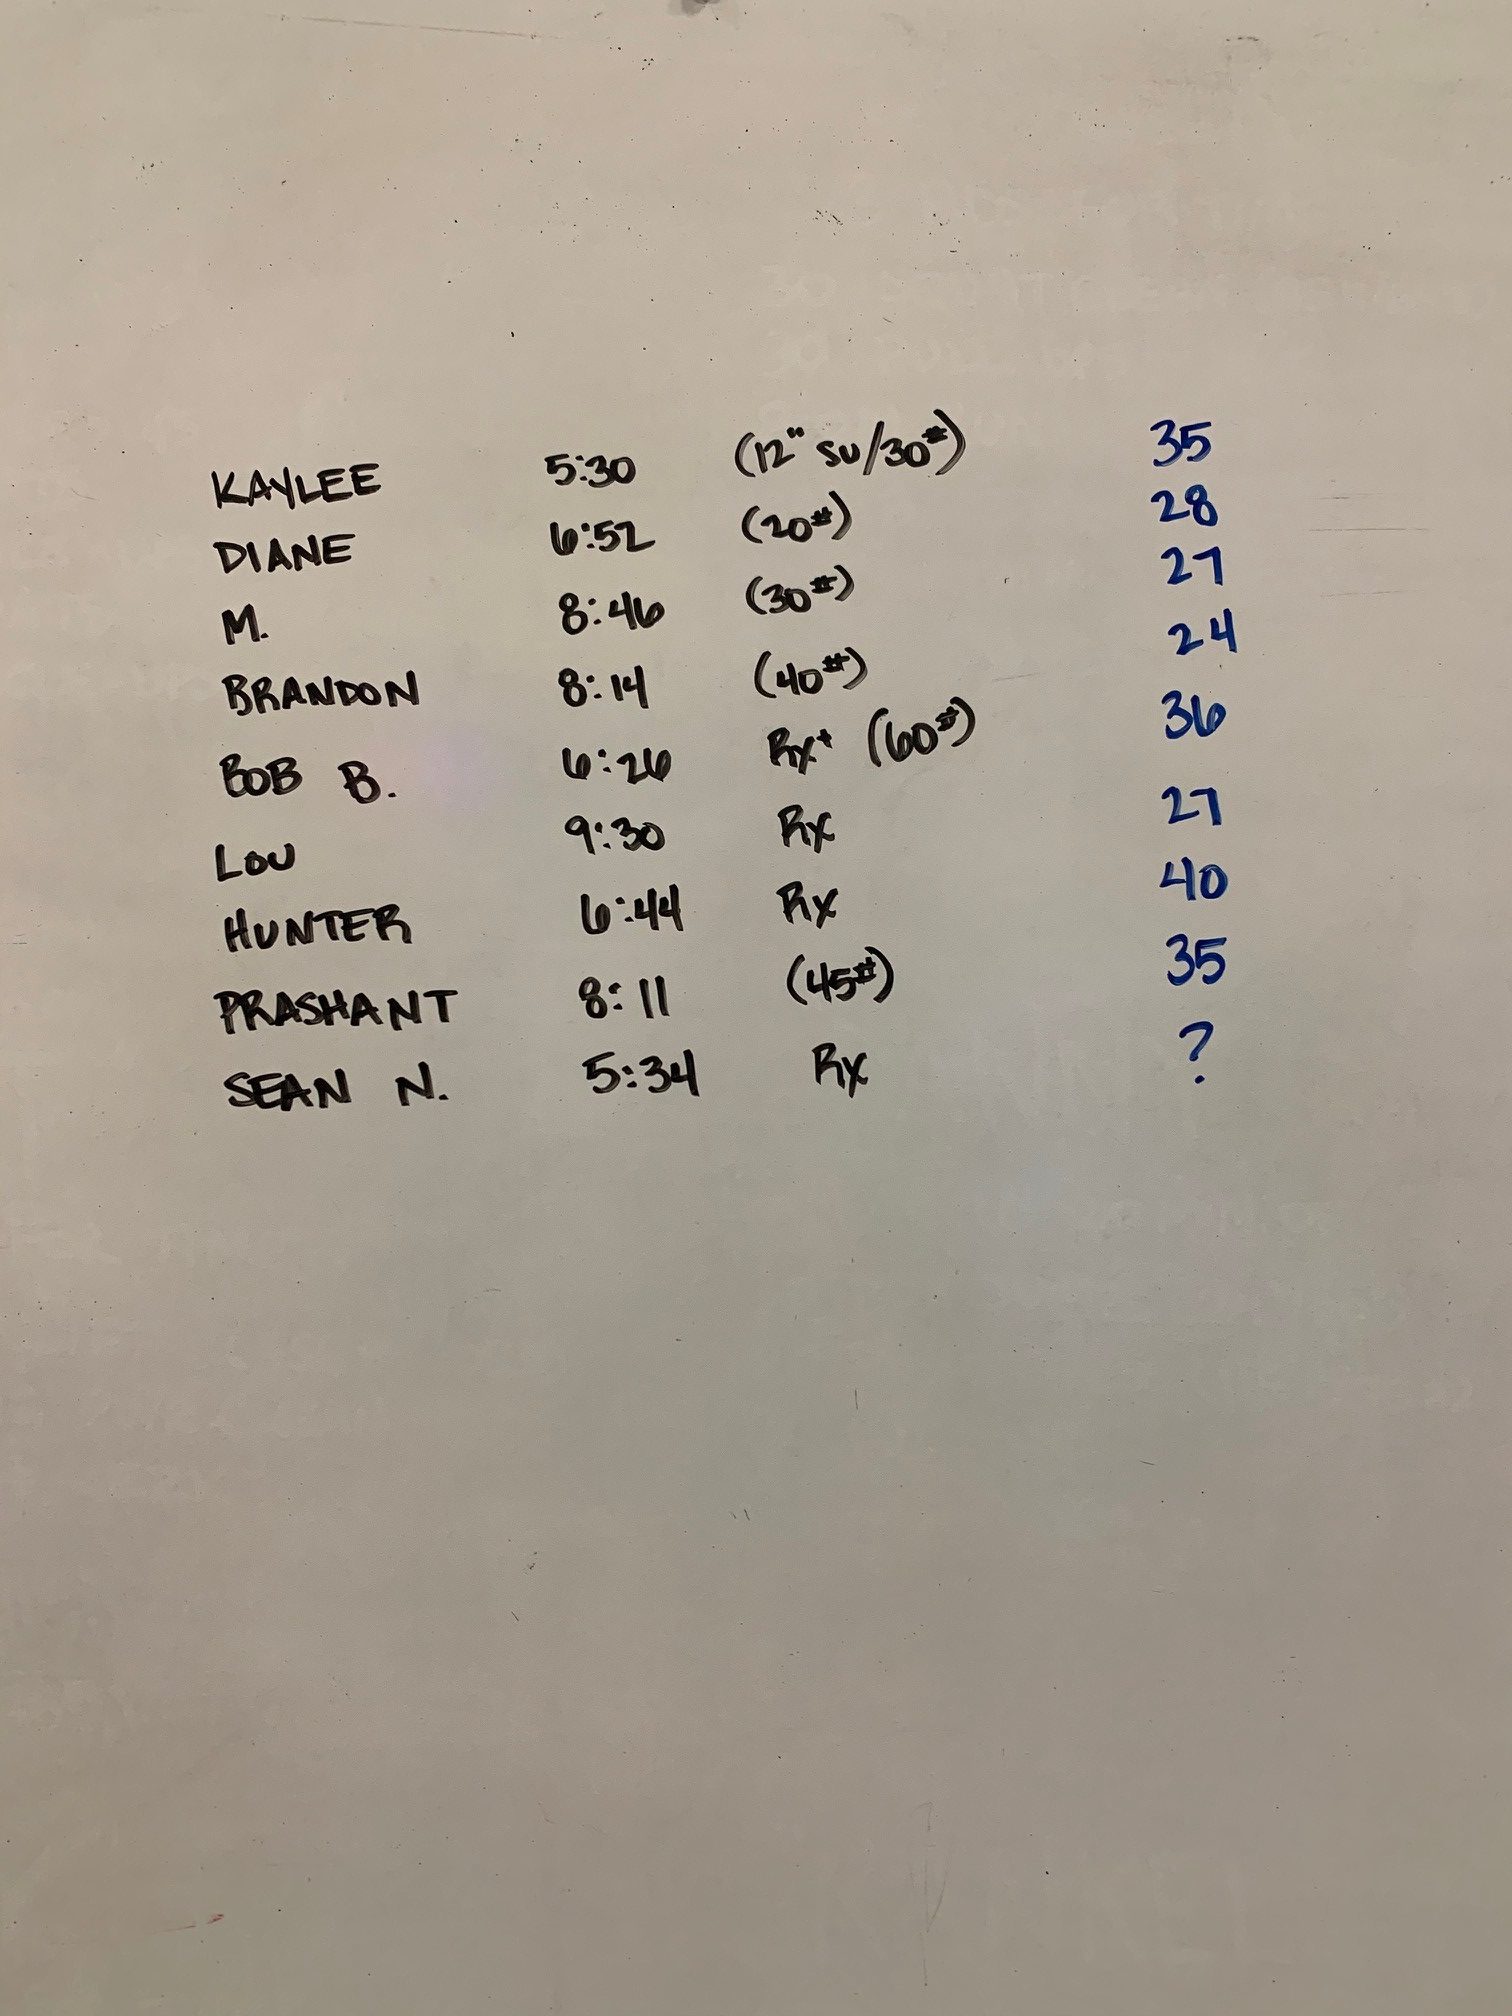 KAYLEE 5:30 (12" SU/30#) 35
DIANE 6:52 (20#) 28
M. 8:46 (30#) 27
BRANDON 8:14 (40#) 24
BOB B. 6:26 Rx+ (60#) 36
LOU 9:30 Rx 27
HUNTER 6:44 Rx 40
PRASHANT 8:11 (45#) 35
SEAN N. 5:34 Rx ?